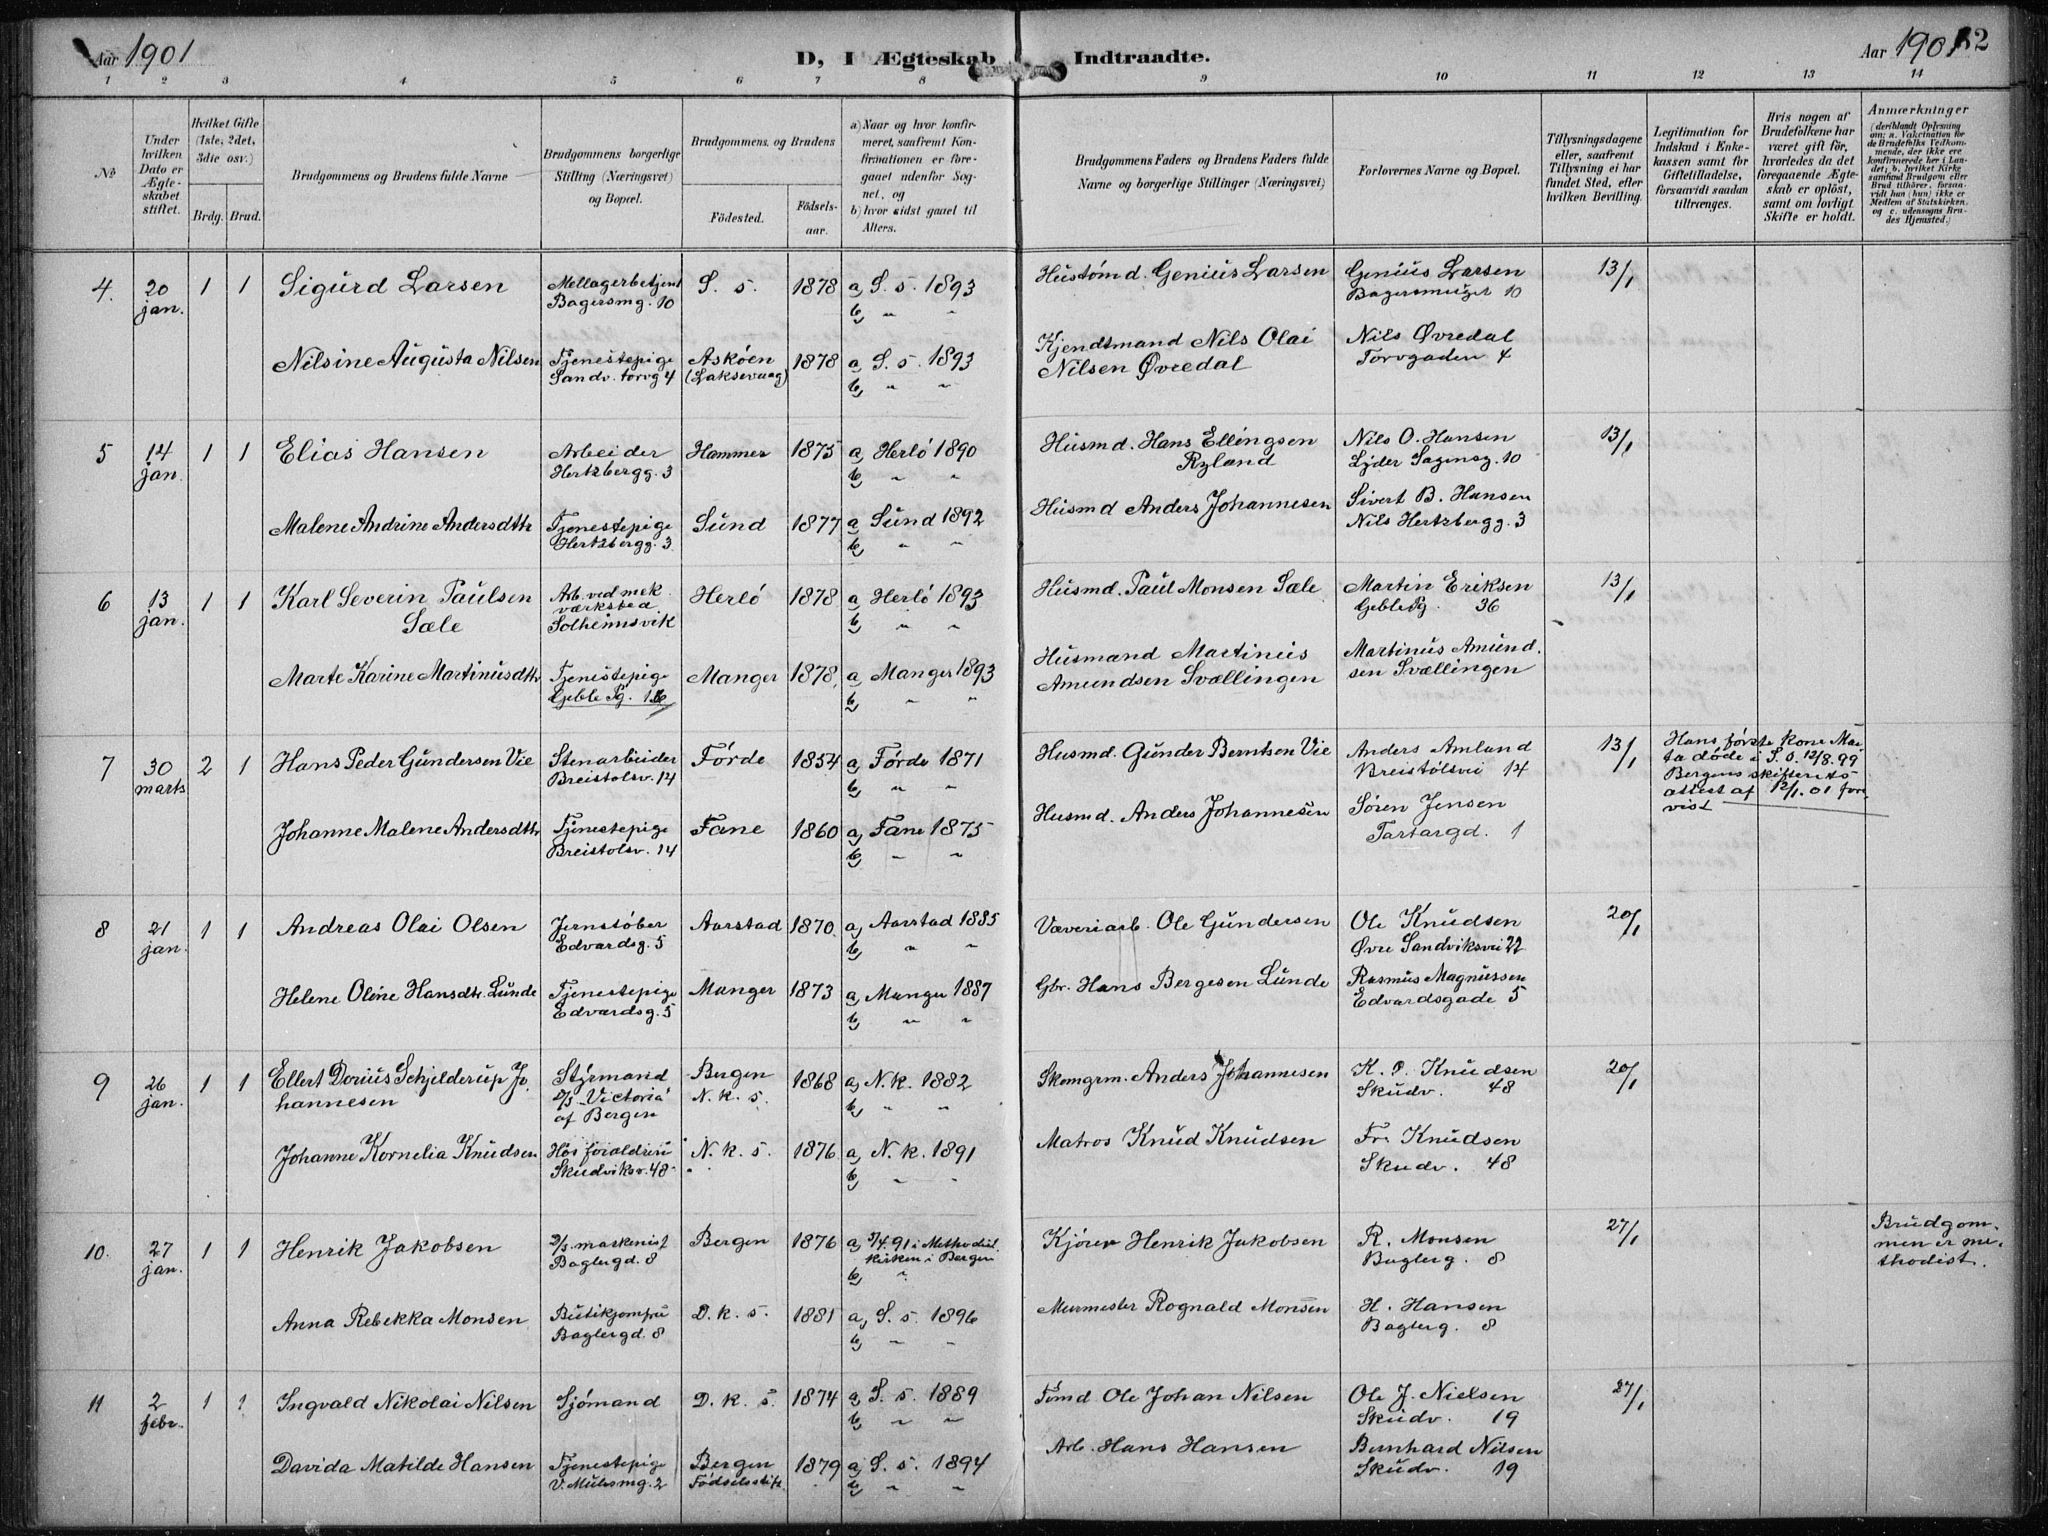 Aar 1901
D, I Ægteskab Indtraadte.
Aar 1901 82
1 2 3 4 5 6 7 8 9 10 11 12 13 14
No
Under hvilken Dato er Ægteskabet stiftet.
Hvilket Gifte (1ste, 2det, 3die osv.)
Brdg. Brud.
Brudgommens og Brudens fulde Navne
Brudgommens borgerlige Stilling (Næringsvei) og Bopæl.
Brudgommens og Brudens
Fødested.
Fødselsaar.
a) Naar og hvor konfirmeret, saafremt Konfirmationen er foregaaet udenfor Sognet, og
b) hvor sidst gaaet til Alters.
Brudgommens Faders og Brudens Faders fulde Navne og borgerlige Stillinger (Næringsvei)
Forlovernes Navne og Bopæl.
Tillysningsdagene eller, saafremt Tillysning ei har fundet Sted, efter hvilken Bevilling.
Legitimation for Indskud i Enkekassen samt for Giftetilladelse, forsaavidt saadan tiltrænges.
Hvis nogen af Brudefolkene har været gift før, hvorledes da det foregaaende Ægteskab er opløst, samt om lovligt Skifte er holdt.
Anmærkninger (deriblandt Oplysning om: a. Vakcination for de Brudefolks Vedkommende, der ikke ere konfirmerede her i Landet; b. hvilket Kirkesamfund Brudgom eller Brud tilhører, forsaavidt han (hun) ikke er Medlem af Statskirken, og c. udensogns Brudes Hjemsted.)
4. 20 jan. 1 1 Sigurd Larsen
Mellagerbetjent Bagersmg. 10
S. s. 1878 a) S. s. 1893
b) " "
Hustømd. Genius Larsen
Genius Larsen Bagersmuget 10
13/1
Nilsine Augusta Nilsen
Tjenestepige Sandv. torvg 4
Askøen (Laksevaag) 1878 a) S. s. 1893
b) " "
Kjendtmand Nils Olai Nilsen Øvredal
Nils Øvredal Torvgaden 4
5 14 jan. 1 1 Elias Hansen
Arbeider Hertzbergg. 3
Hammer 1875 a) Herlø 1890
b) " "
Husmd. Hans Ellingsen Ryland
Nils O. Hansen Lyder Sagensg. 10
13/1
Malene Andrine Andersdttr
Tjenestepige Hertzbergg. 3
Sund 1877 a) Sund 1892
b) " "
Husmd Anders Johannesen
Sivert B. Hansen Nils Hertzbergg. 3
6 13 jan. 1 1 Karl Severin Paulsen Sæle
Arb. ved mek. værksted Solheimsvik
Herlø 1878 a) Herlø 1893
b) " "
Husmd. Paul Monsen Sæle
Martin Eriksen Geble Pg. 36
13/1
Marte Karine Martinusdttr
Tjenestepige Geble Pg.
Manger 1878 a) Manger 1893
b) " "
Husmand Martinus Amundsen Svællingen
Martinus Amundsen Svællingen
7 30 marts 2 1 Hans Peder Gundersen Vie
Stenarbeider Breistolsv. 14
Førde 1854 a) Førde 1871
b) " "
Husmd. Gunder Berntsen Vie
Anders Amland Breistølsvei 14
13/1
Hans første kone Mar-
ta døde i S. s. 12/8.99
Bergens skifterets
attest af 12/1.01 fore-
vist
Johanne Malene Andersdttr
Tjenestepige Breistolsv. 14
Fane 1860 a) Fane 1875
b) " "
Husmd. Anders Johannesen
Søren Jensen Tartargd. 1
8 21 jan. 1 1 Andreas Olai Olsen
Jernstøber Edvardsg. 5
Aarstad 1870 a) Aarstad 1885
b) " "
Væveriarb. Ole Gundersen
Ole Knudsen Øvre Sandviksvei 22
20/1
Helene Oline Hansdtr. Lunde
Tjenestepige Edvardsg. 5
Manger 1873 a) Manger 1887
b) " "
Gbr. Hans Bergesen Lunde
Rasmus Magnussen Edvardsgade 5
9 26 jan. 1 1 Ellert Dorius Schjelderup Johannesen
Styrmand D/S "Victoria" af Bergen
Bergen N. k. s. 1868 a) N. k. 1882
b) " "
Skomgrm. Anders Johannesen
K. P. Knudsen Skudv. 48
20/1
Johanne Kornelia Knudsen
Hos forældrene Skudviksv. 48
N. k. s. 1876 a) N. k. 1891
b) " "
Matros Knud Knudsen
Fr. Knudsen Skudv. 48
10. 27 jan. 1 1 Henrik Jakobsen
D/S. maskenist Baglergd. 8
Bergen 1876 a) 5/4.91 i Methodistkirken i Bergen
b) "
Kjører Henrik Jakobsen
R. Monsen Baglerg. 8
27/1
Brudgommen er methodist.
Anna Rebekka Monsen
Butikjomfru Baglergd. 8
D. k. s. 1881 a) S. s. 1896
b) " "
Murmester Rognald Monsen
H. Hansen Baglerg. 8
11 2 febr. 1 1 Ingvald Nikolai Nilsen
Sjømand
D. k. s. 1874 a) S. s. 1889
b) " "
Tømd Ole Johan Nilsen
Ole J. Nielsen Skudv. 19
27/1
Davida Matilde Hansen
Tjenestepige V. Mulesmg. 2
Bergen Fødselsstift. 1879 a) S. s. 1894
b) " "
Arb. Hans Hansen
Bernhard Nilsen Skudv. 19